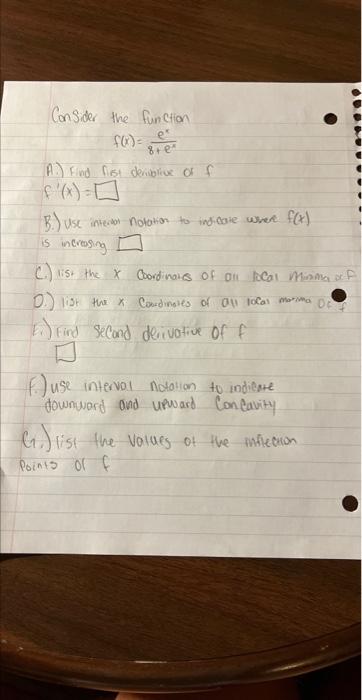 Consider the function
f(x) = e^x / 8 + e^x
A.) Find first derivative of f
f'(x) = □
B.) Use interval notation to indicate where f(x)
is increasing □
C.) list the x Coordinates of all local minima of f
D.) list the x Coordinates of all local maxima of f
E.) Find Second derivative of f
□
F.) use interval notation to indicate
downward and upward Concavity
G.) list the values of the inflection
Points of f